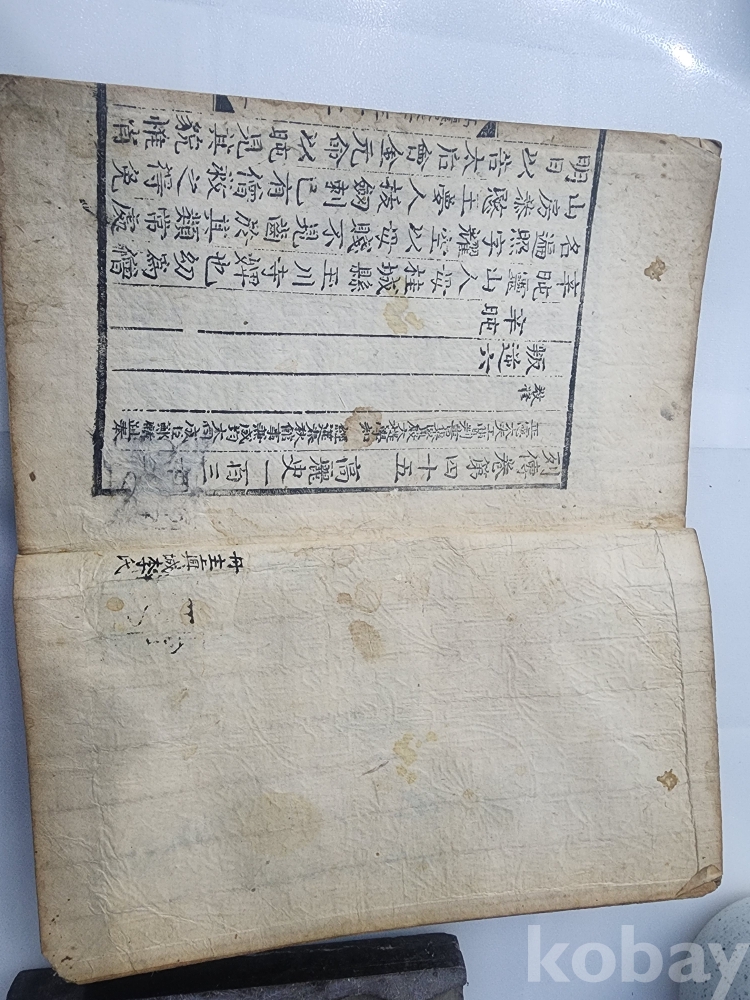 冊主興城李氏
列傳卷第四十五 高麗史一百三
正憲大夫工曹判書集賢殿大提學知
經筵春秋館事兼成均大司成臣鄭麟趾奉
教修
叛逆六
辛旽
辛旽靈山人母桂城縣玉川寺婢也幼爲僧
名遍照字耀空以母賤不見齒於其類常處
山房恭愍王夢人拔劍刺己有僧救之得免
明日以告太后會金元命以旽見其貌惟肖
kobay